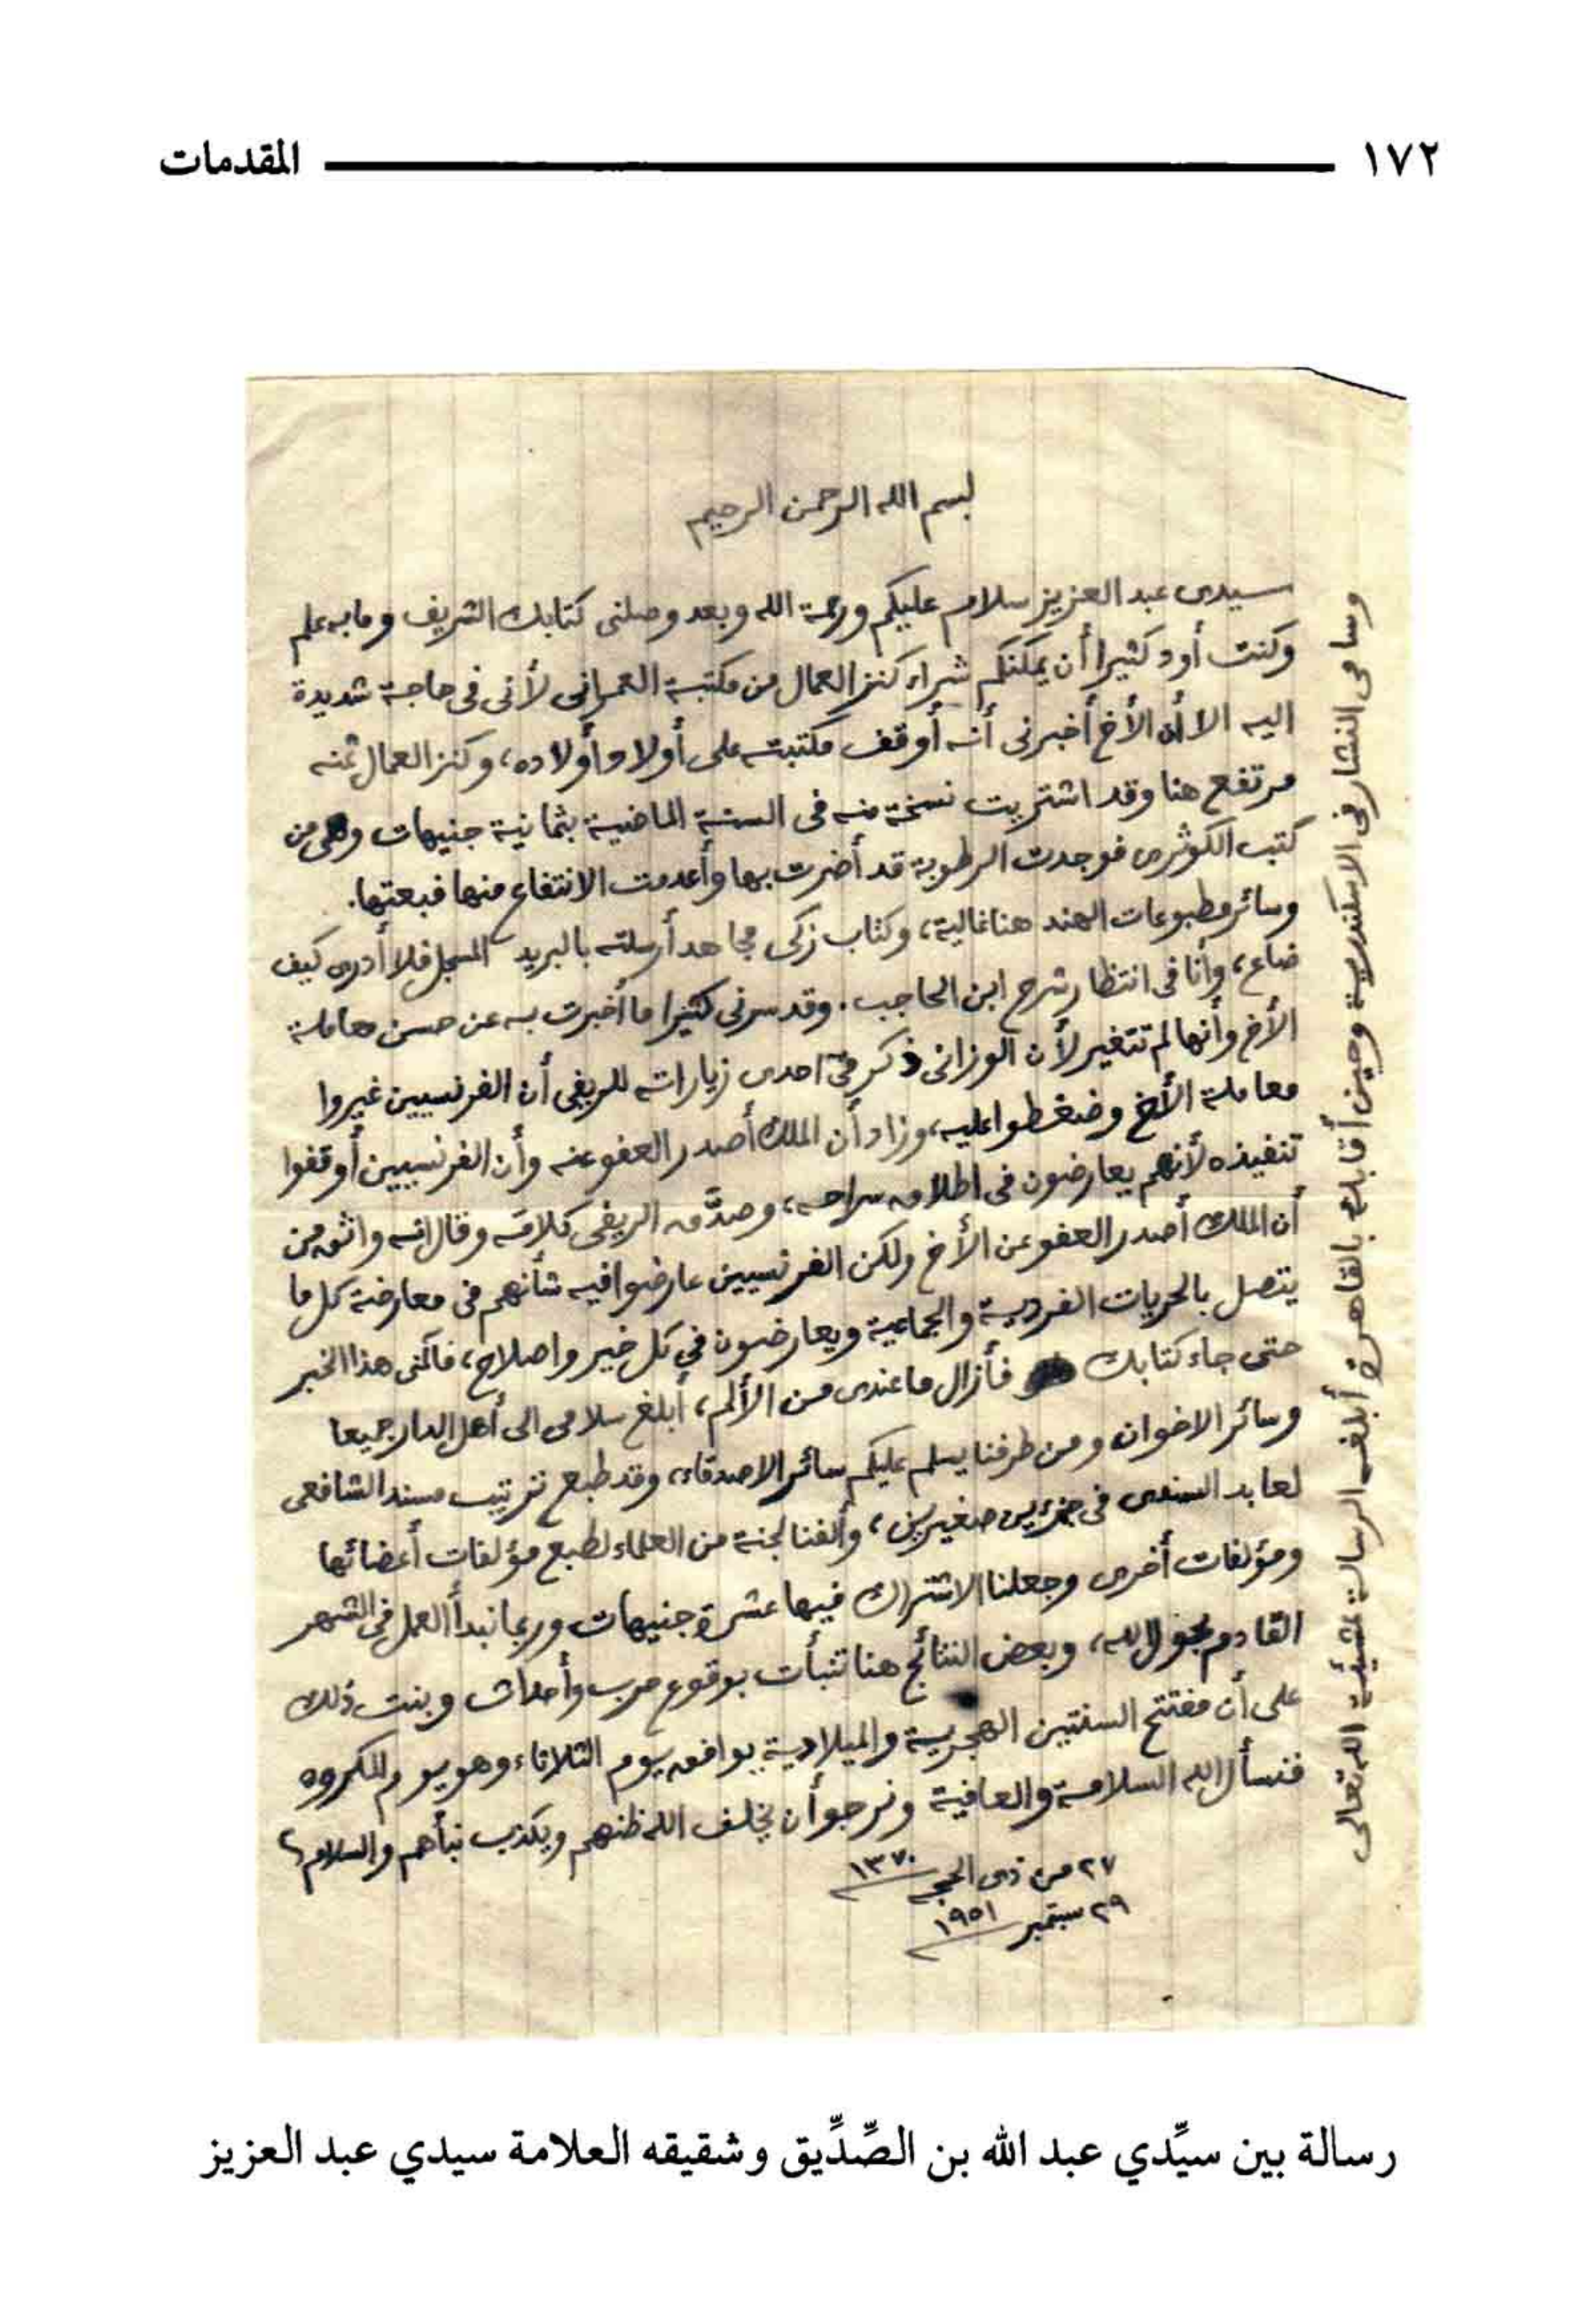 ١٧٢ المقدمات
بسم الله الرحمن الرحيم
سيدى عبد العزيز سلام عليكم ورحمة الله وبعد وصلنى كتابك الشريف وما به علم
وكنت أود كثيرا أن يمكنكم شراء كنز العمال من مكتبة العمرانى لأنى فى حاجة شديدة
اليه الا أن الأخ أخبرنى أنه أوقف مكتبته على أولاد أولاده، وكنز العمال ثمنه
مرتفع هنا وقد اشتريت نسخة منه فى السنة الماضية بثمانية جنيهات وهى من
كتب الكوثرى فوجدت الرطوبة قد أضرت بها وأعدمت الانتفاع منها فبعتها.
وسائر مطبوعات الهند هنا غالية، وكتاب زكى مجاهد أرسلته بالبريد المسجل فلا أدرى كيف
ضاع، وأنا فى انتظار شرح ابن الحاجب. وقد سرنى كثيرا ما أخبرت به عن حسن معاملة
الأخ وأنها لم تتغير لأن الوزانى ذكر فى احدى زياراته للريفى أن الفرنسيين غيروا
معاملة الأخ وضغطوا عليه، وزاد أن الملك أصدر العفو عنه وأن الفرنسيين أوقفوا
تنفيذه لأنهم يعارضون فى اطلاق سراحه، وصدَّق الريفى كلامه وقال انه واثق من
أن الملك أصدر العفو عن الأخ ولكن الفرنسيين عارضوا فيه شأنهم فى معارضة كل ما
يتصل بالحريات الفردية والجماعية ويعارضون في كل خير واصلاح، فآلمنى هذا الخبر
حتى جاء كتابك فأزال ما عندى من الألم، أبلغ سلامى الى أهل الدار جميعا
وسائر الاخوان ومن طرفنا يسلم عليكم سائر الاصدقاء، وقد طبع ترتيب مسند الشافعى
لعابد السندى فى جزءين صغيرين، وألفنا لجنة من العلماء لطبع مؤلفات أعضائها
ومؤلفات أخرى وجعلنا الاشتراك فيها عشرة جنيهات وربما نبدأ العمل فى الشهر
القادم بحول الله، وبعض النتائج هنا تنبأت بوقوع حرب وأحداث وبنت ذلك
على أن مفتتح السنتين الهجرية والميلادية يوافق يوم الثلاثاء وهو يوم المكروه
فنسأل الله السلامة والعافية ونرجو أن يخلف الله ظنهم ويكذب نبأهم والسلام
٢٧ من ذى الحجة ١٣٧٠
٢٩ سبتمبر ١٩٥١
وسامى النشار فى الاسكندرية وحين أقابله بالقاهرة أبلغه الرسالة بمشيئة الله تعالى
رسالة بين سيِّدي عبد الله بن الصِّدِّيق وشقيقه العلامة سيدي عبد العزيز